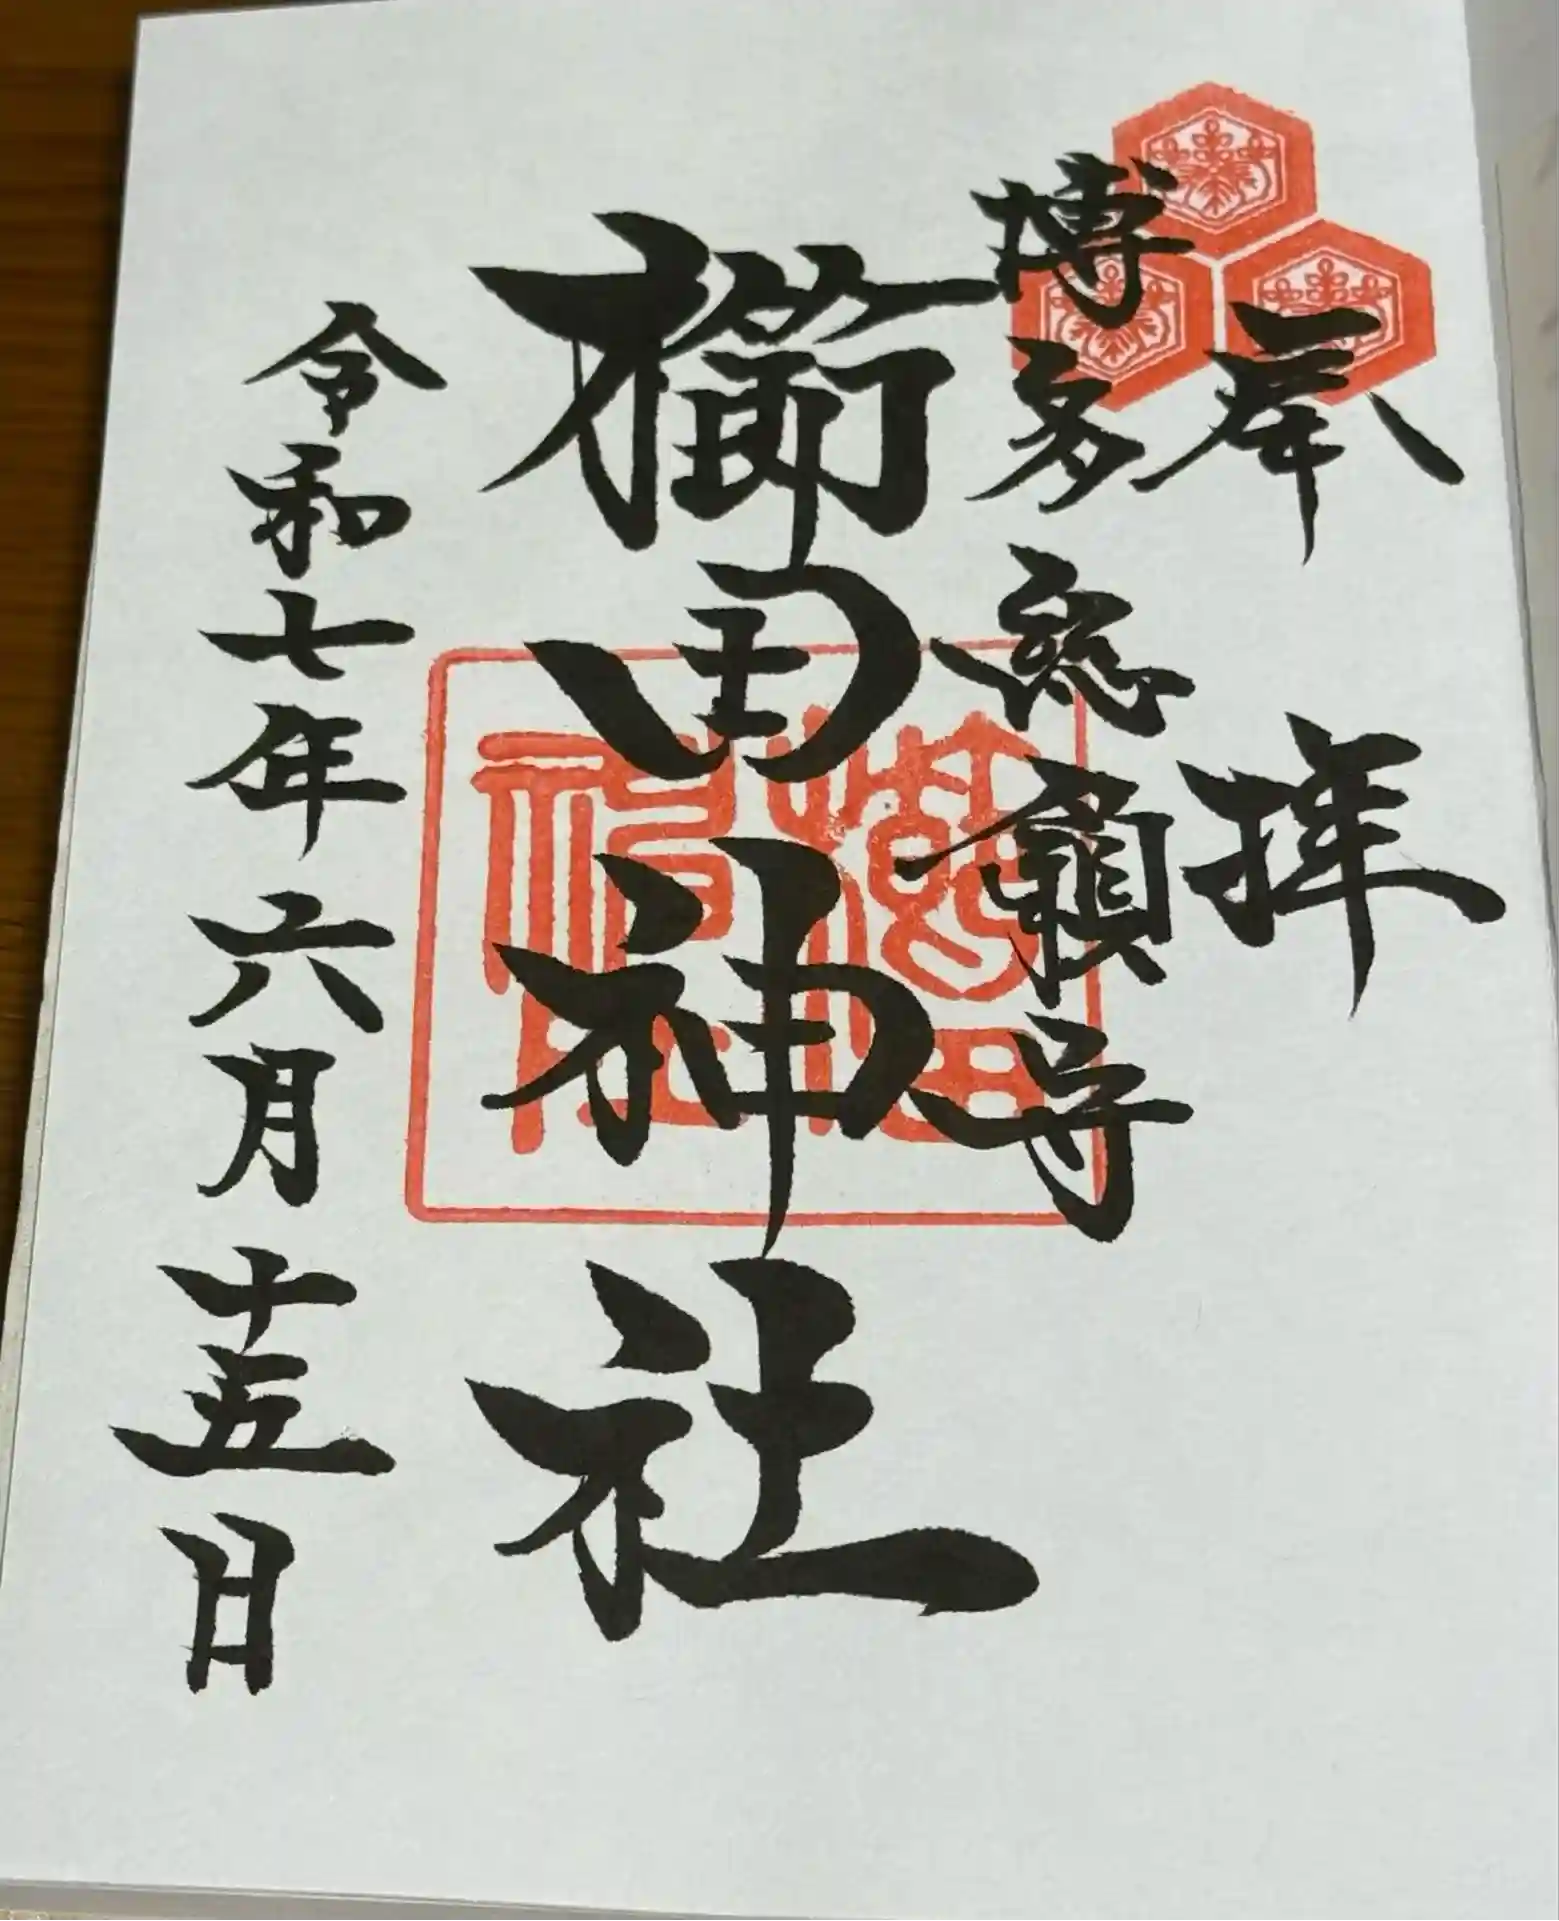 奉拝
博多総鎮守
櫛田神社
令和七年六月十五日
櫛田神社